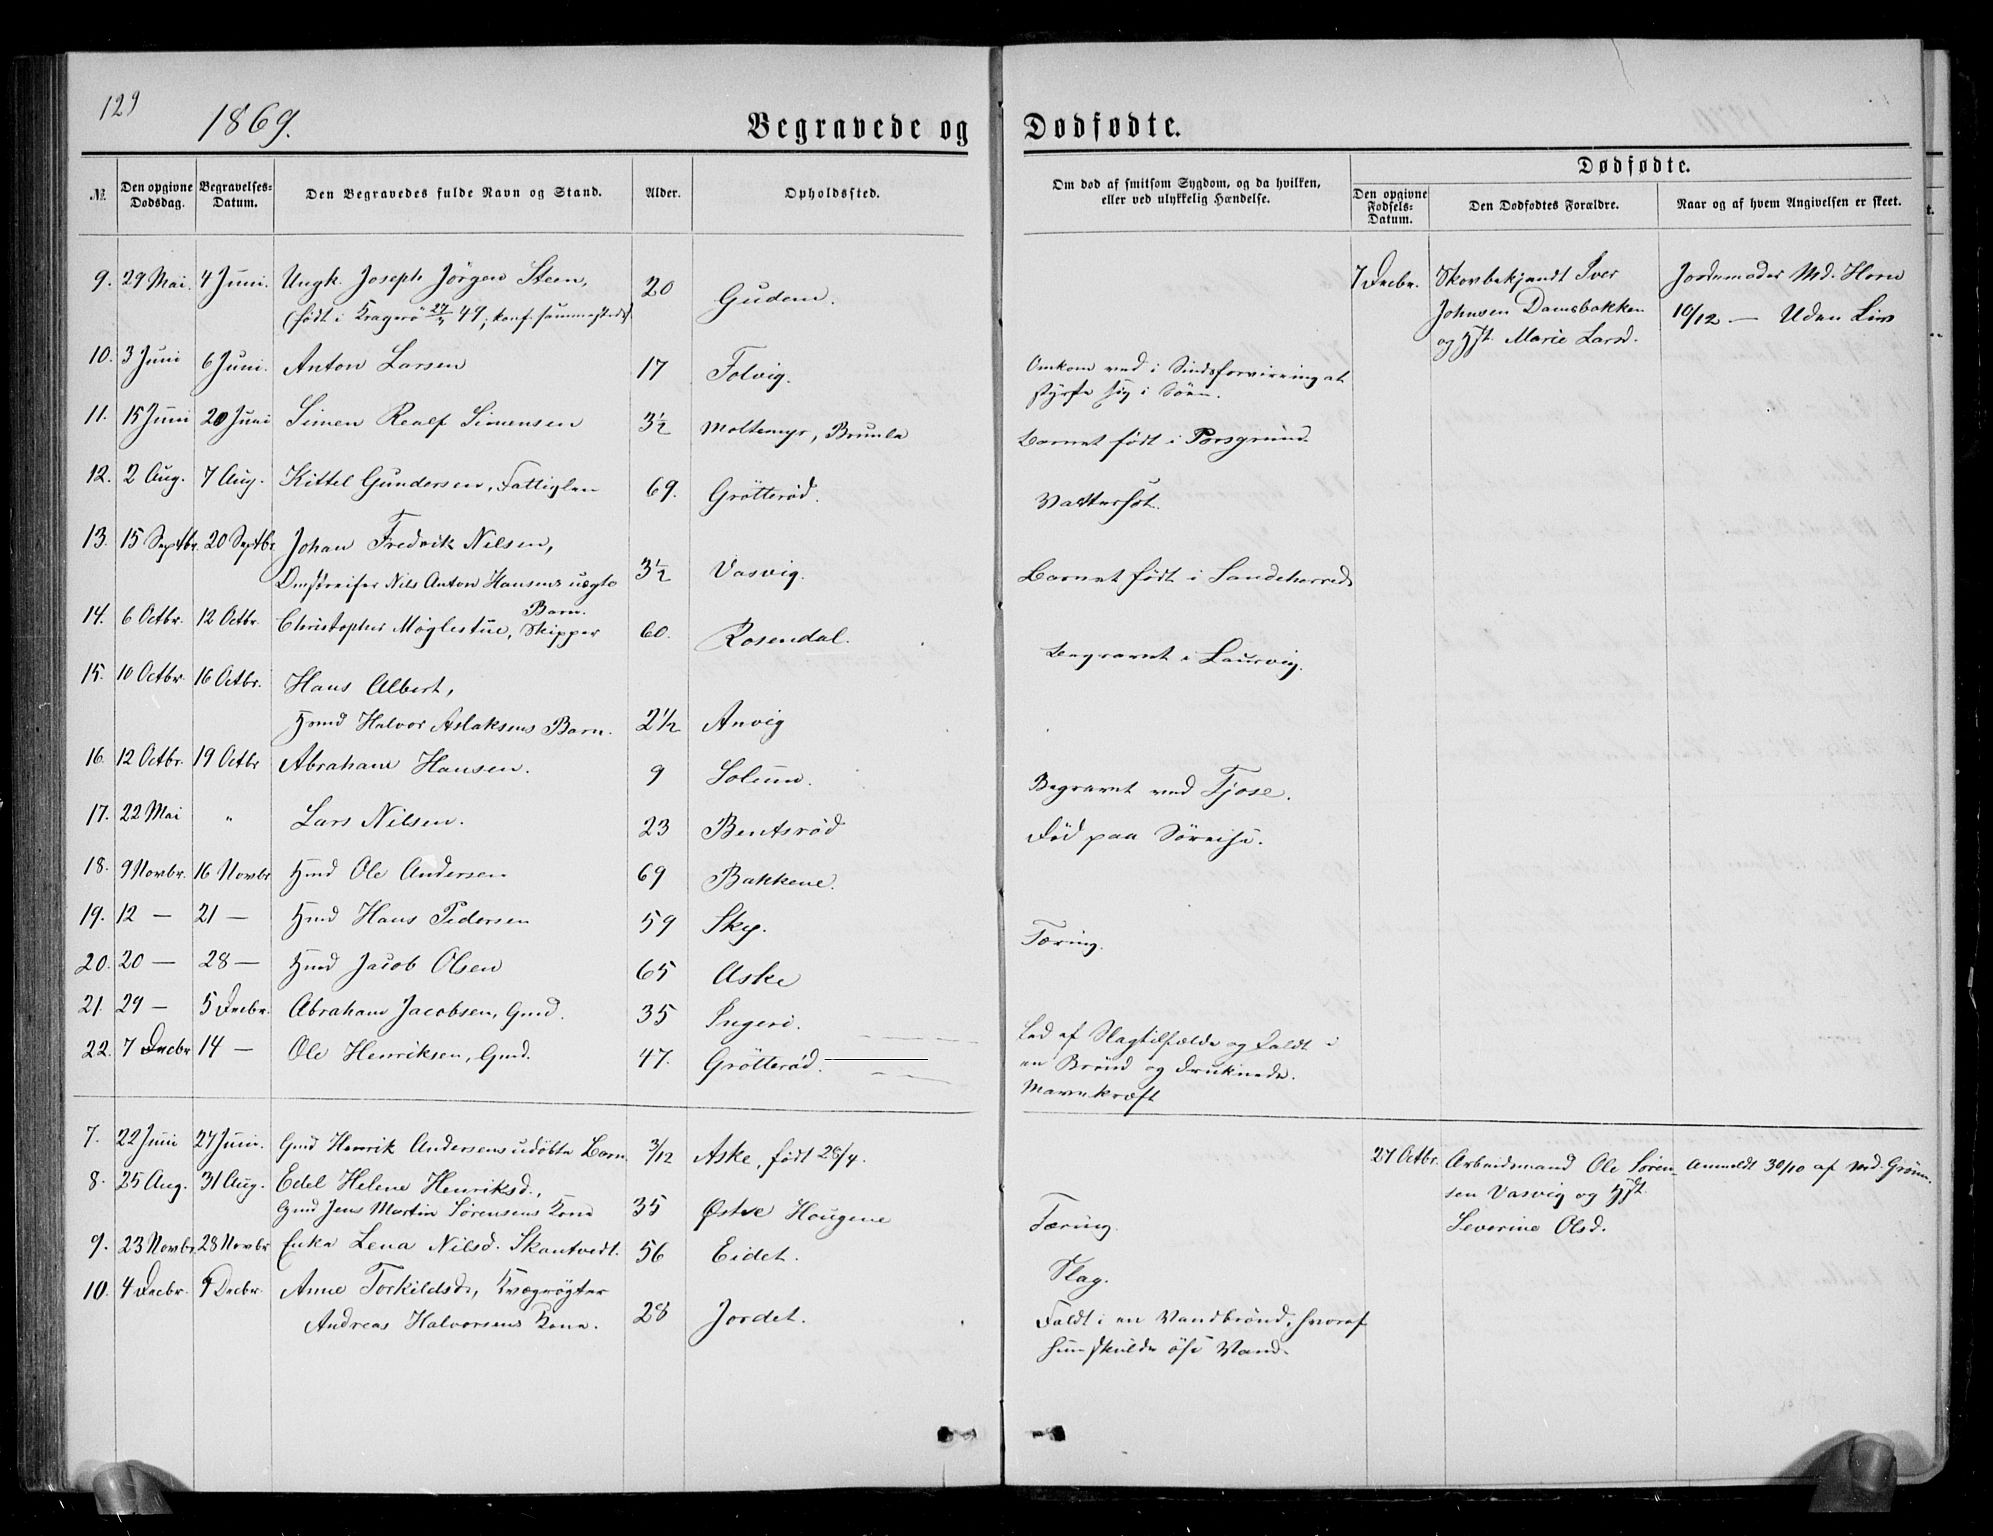 129
1869.
Begravede og Dødfødte.
Dødfødte.
№
Den opgivne Dødsdag.
Begravelses-Datum.
Den Begravedes fulde Navn og Stand.
Alder.
Opholdssted.
Om død af smitsom Sygdom, og da hvilken, eller ved ulykkelig Hændelse.
Den opgivne Fødsels-Datum.
Den Dødfødtes Forældre.
Naar og af hvem Angivelsen er skeet.
9. 29 Mai 4 Juni. Ungk. Joseph Jörgen Steen, 20 Gudem.
(født i Kragerö 49, konf. sammesteds)
10. 3 Juni 6 Juni. Anton Larsen 17 Folvig. Omkom ved i Sindsforvirring at
styrte sig i Söen.
11. 15 Juni 20 Juni Simen Realf Simensen 3½ Moltemyr, Brunla Barnet født i Porsgrund.
12. 2 Aug. 7 Aug. Kittel Gundersen, Fattiglem 69. Grötteröd. Vattersot.
13. 15 Septbr. 20 Septbr. Johan Fredrik Nilsen,
Nils Anton Hansens uægte 3½ Vasvig. Barnet født i Sandeherred
Barn.
14. 6 Octbr. 12 Octbr. Christopher Møglestue, Skipper 60. Rosendal. Begravet i Laurvig.
15. 10 Octbr. 16 Octbr. Hans Albert,
Hmd Halvor Aslaksens Barn. 2½ Anvig
16. 12 Octbr. 19 Octbr Abraham Hansen. 9 Solum. Begravet ved Tjose.
17. 22 Mai " Lars Nilsen. 23 Bentsröd Död paa Söreise.
18. 9 Novbr. 16 Novbr Hmd Ole Andersen 69 Bakkene.
19. 12 — 21 — Hmd Hans Pedersen 59 Sky. Tæring.
20. 20 — 28 — Hmd Jacob Olsen 65 Aske
21. 29 — 5 Decbr. Abraham Jacobsen, Gmd. 35 Led af Slagtilfælde og faldt i
en Brönd og druknede.
22. 7 Decbr 14 — Ole Henriksen, Gmd. 47. Grötteröd. Mavekræft
7. 22 Juni 27 Juni. Gmd Henrik Andersens udøbte Barn 3/12 Aske, født 28/4.
8. 25 Aug. 31 Aug. Edel Helene Henriksd.,
Gmd Jens Martin Sørensens Kone 35 Østre Hougene Tæring.
9. 23 Novbr. 28 Novbr Lena Nilsd. Skantvedt. 56 Eidet. Slag.
10. 4 Decbr. 9 Decbr. Anne Torkildsd., Kvægrøgter
Andreas Halvorsens Kone. 28 Jordet. Faldt i en Vandbrönd, hvoraf
hun skulde öse Vand.
7 Decbr. Iver
Johnsen Damsbakken
og Hst. Marie Larsd.
Jordemoder Md. Horn
10/12 — Uden Liv
27 Octbr. Arbeidsmand Ole Sören-
sen Vasvig og Hst.
Severine Olsd.
Anmeldt 30/10 af Md. Grönn.